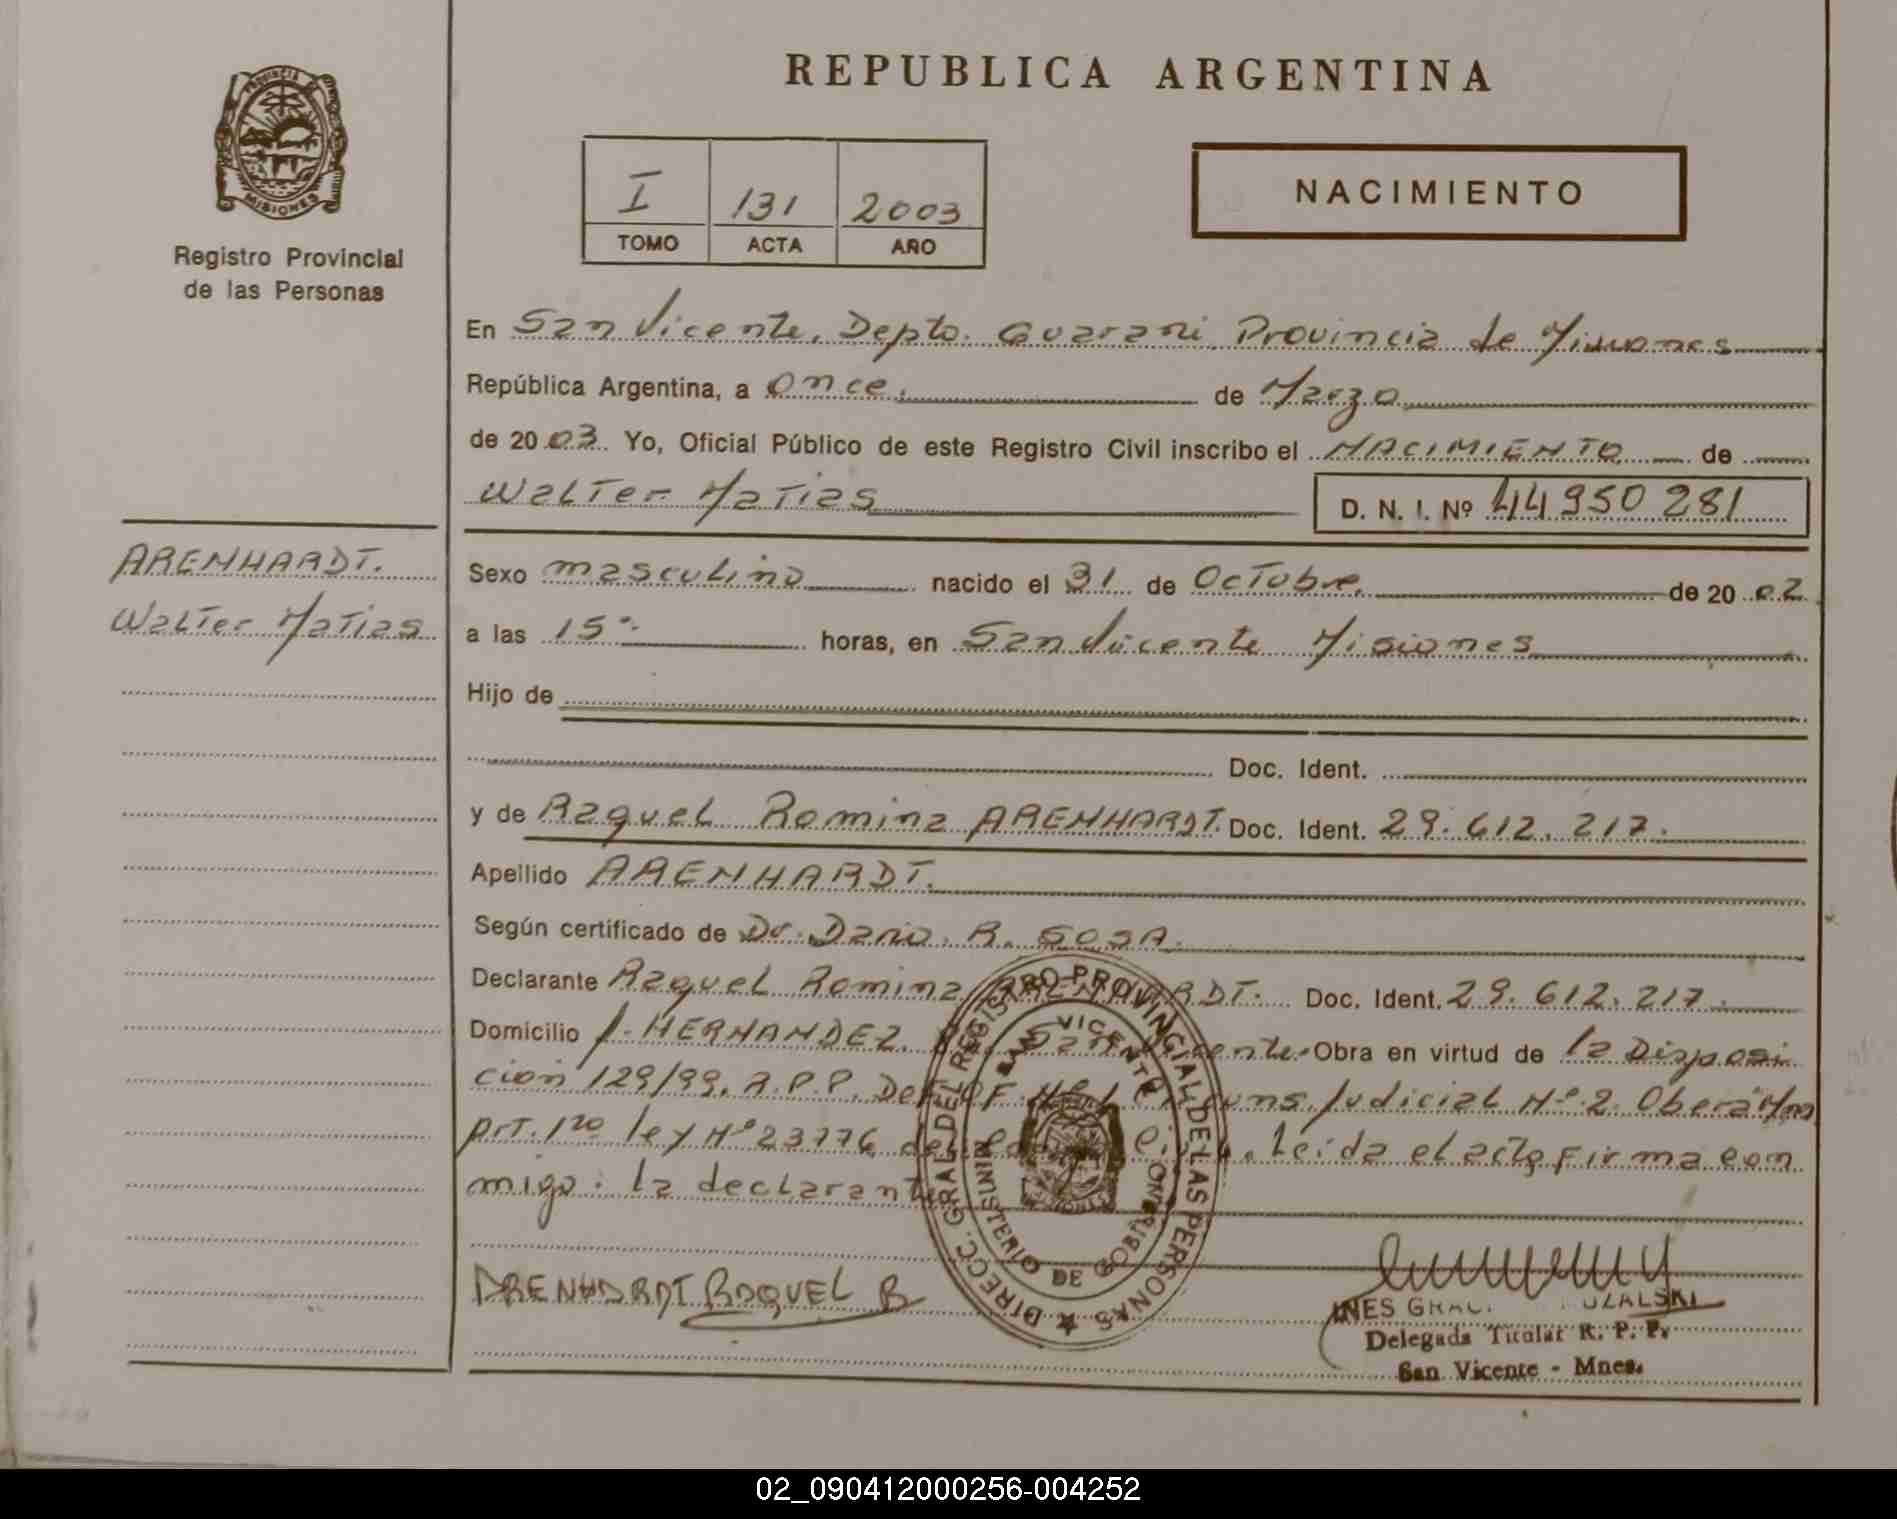 REPUBLICA ARGENTINA
PROVINCIA DE
MISIONES
Registro Provincial
de las Personas
I 131 2003
TOMO ACTA AÑO
NACIMIENTO
En San Vicente, Depto. Guarani Provincia de Misiones
República Argentina, a once. de Marzo
de 2003 Yo, Oficial Público de este Registro Civil inscribo el NACIMIENTO de
Walter Matias D. N. I. Nº 44950281
ARENHARDT.
Walter Matias
Sexo masculino nacido el 31 de Octubre. de 2002
a las 15 horas, en San Vicente Misiones
Hijo de
Doc. Ident.
y de Raquel Romina ARENHARDT. Doc. Ident. 29.612.217.
Apellido ARENHARDT.
Según certificado de Dr. Dario. R. SOSA.
Declarante Raquel Romina ARENHARDT. Doc. Ident. 29.612.217.
Domicilio J. HERNANDEZ. San Vicente. Obra en virtud de la Disposi
cion 129/99. R.P.P. Def. OF. Nº 1 Circuns. Judicial Nº 2. Oberá Mnes
Art. 1ro ley Nº 23776 Leida el acta firma con
migo: la declarante
DIRECC. GRAL. DEL REGISTRO PROVINCIAL DE LAS PERSONAS
SAN VICENTE
MINISTERIO DE GOBIERNO
ARENHARDT RAQUEL R
INES
Delegada Titular R. P. P.
San Vicente - Mnes.
02_090412000256-004252